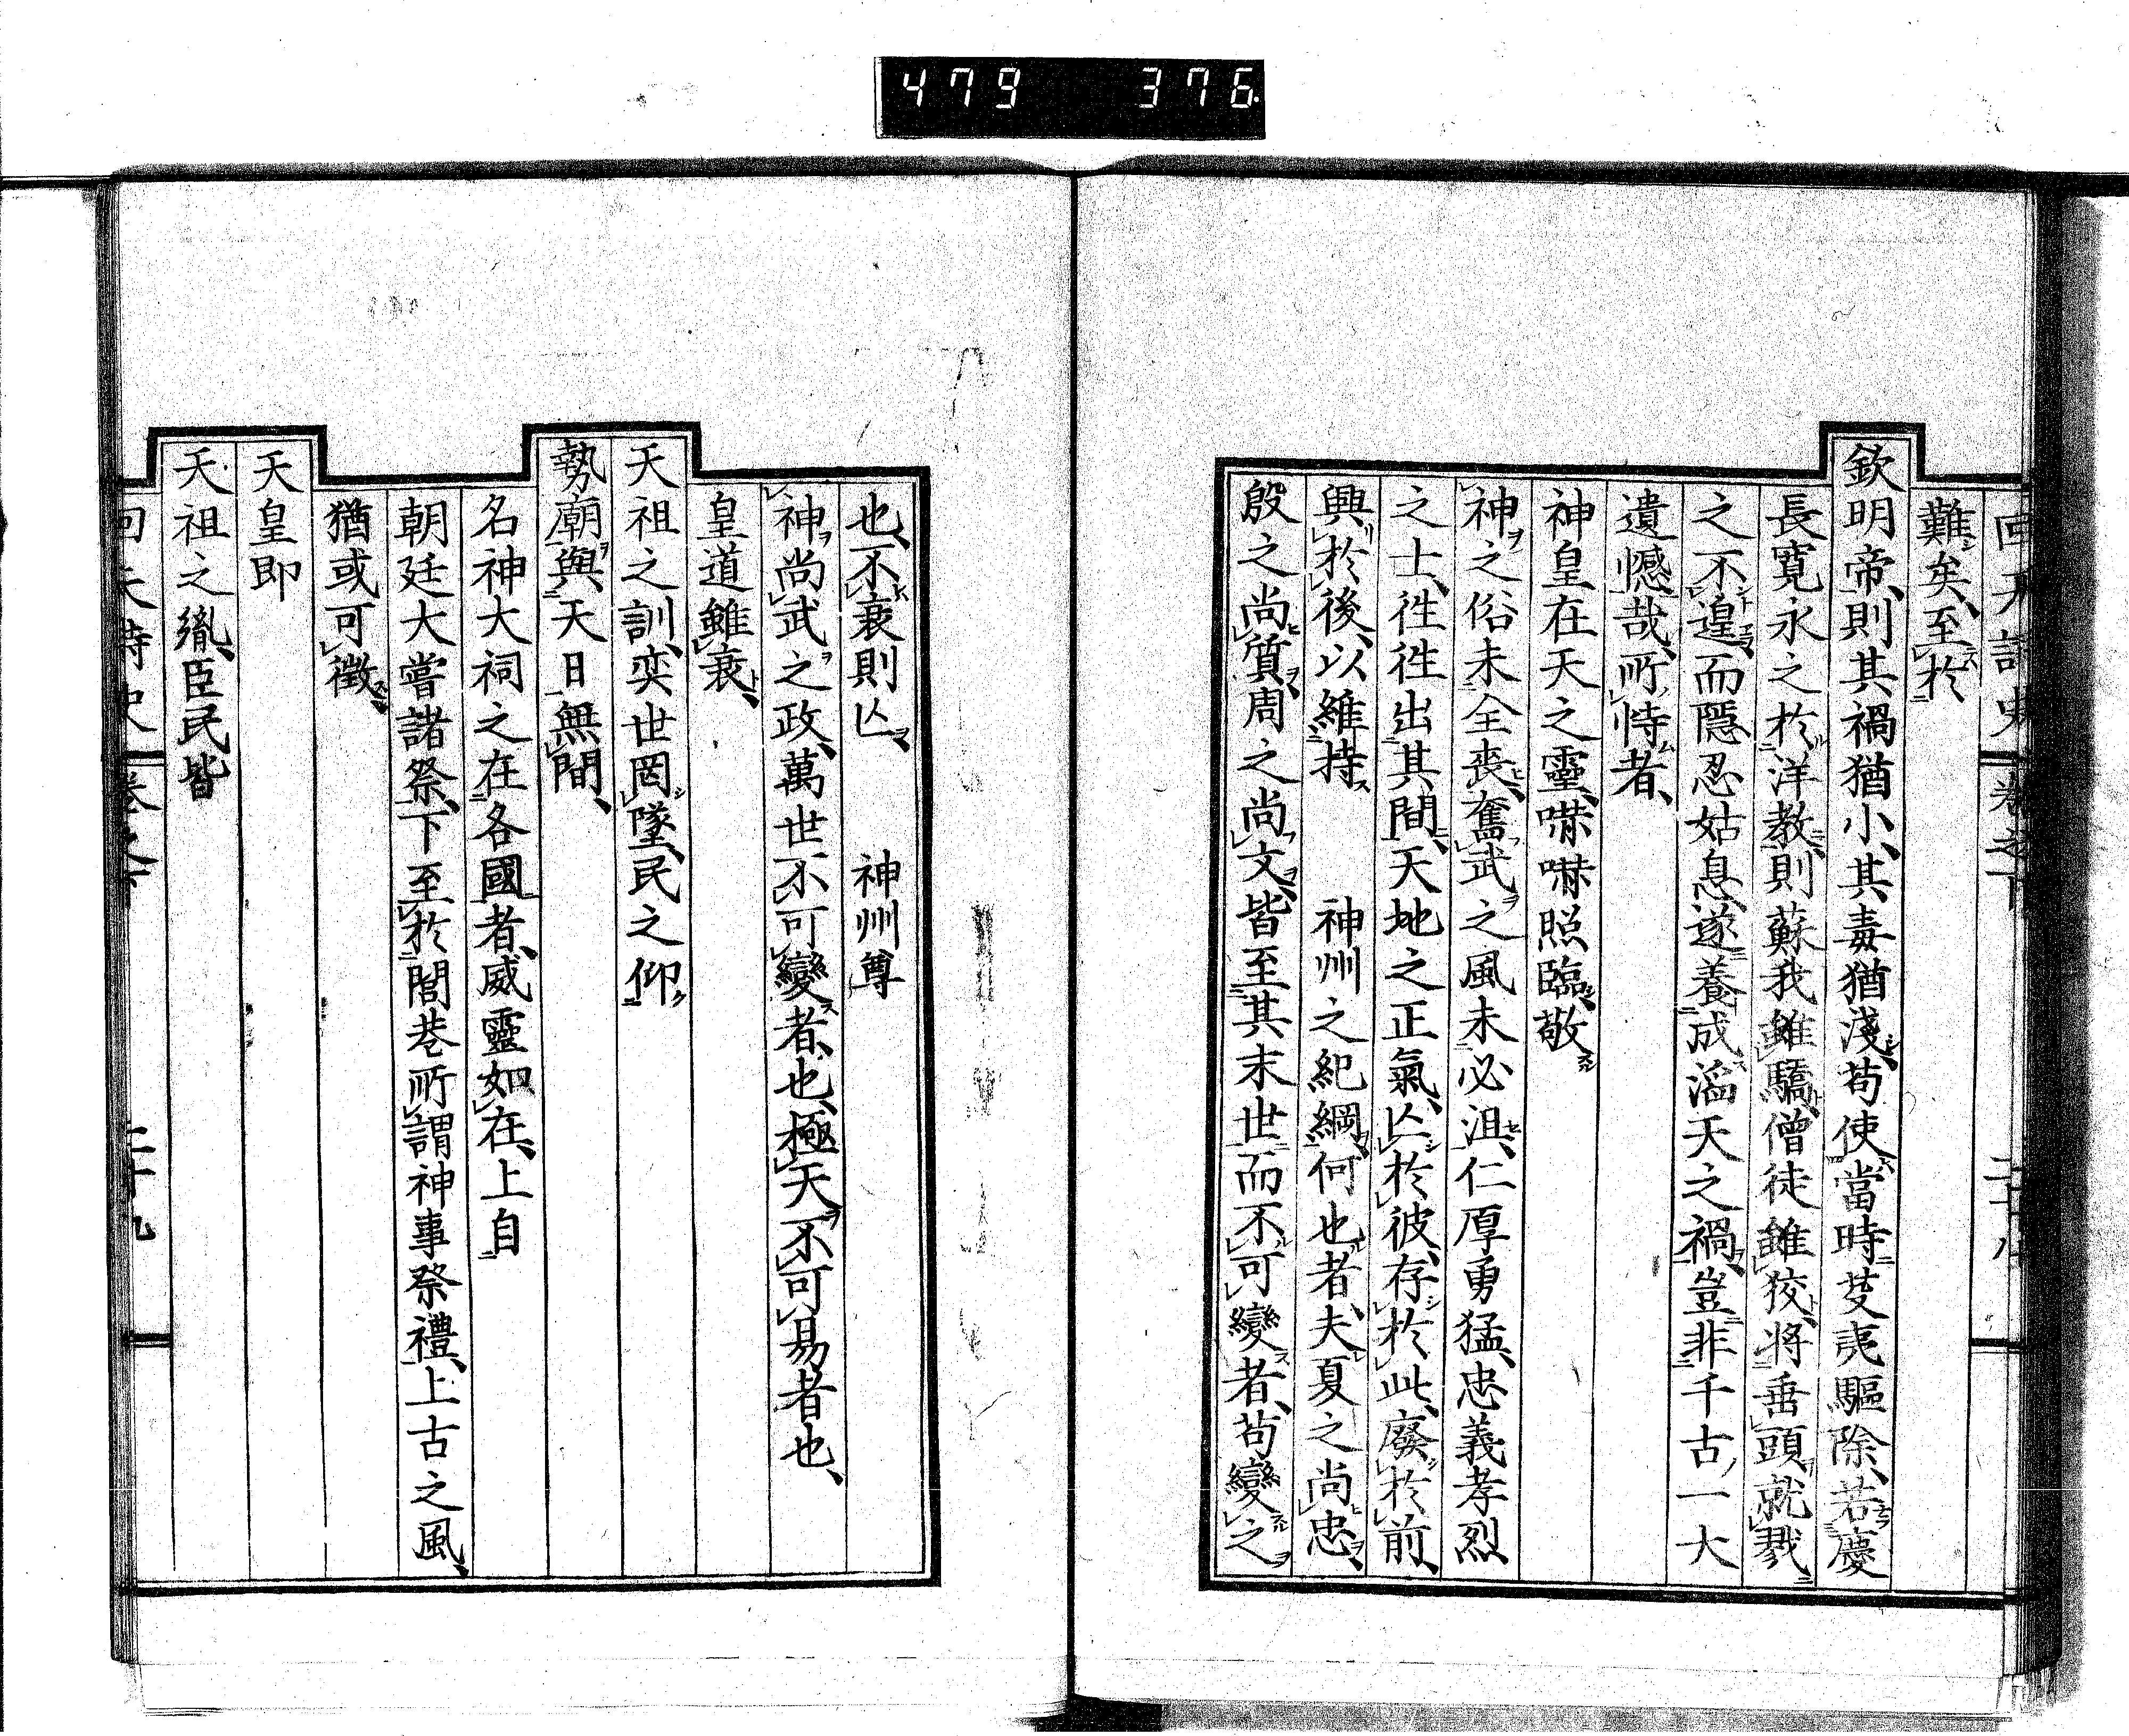 479 376
回天詩史 卷之下 二十八
難矣、至於
欽明帝、則其禍猶小、其毒猶淺、苟使當時芟夷驅除、若慶
長寬永之於洋教、則蘇我雖驕、僧徒雖狡、將垂頭就戮
之不遑、而隱忍姑息、遂養成滔天之禍、豈非千古一大
遺憾哉、所恃者、
神皇在天之靈、嚇嚇照臨、敬
神之俗未全喪、奮武之風未必沮、仁厚勇猛、忠義孝烈
之士、徃徃出其間、天地之正氣、亾於彼、存於此、廢於前、
興於後、以維持 神州之紀綱、何也者、夫夏之尚忠、
殷之尚質、周之尚文、皆至其末世而不可變者、苟變之
也、不衰則亾、 神州尊
神尚武之政、萬世不可變者也、極天不可易者也、
皇道雖衰、
天祖之訓、奕世罔墜、民之仰
勢廟與天日無間、
名神大祠之在各國者、威靈如在、上自
朝廷大嘗諸祭、下至於閭巷所謂神事祭禮、上古之風、
猶或可徵、
天皇即
天祖之胤、臣民皆
回天詩史 卷之下 二十九